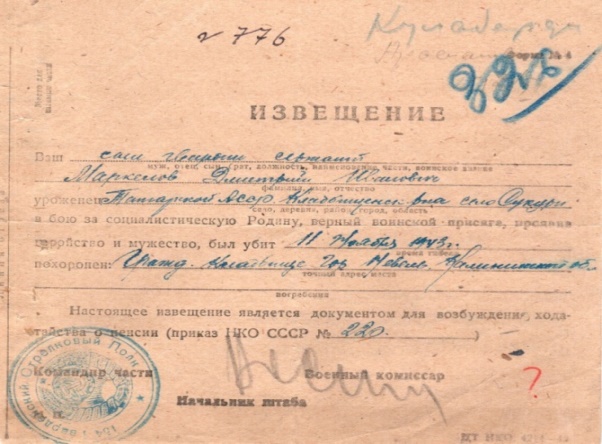 № 776
Форма № 4
ИЗВЕЩЕНИЕ
Ваш сын Гвардии сержант
муж, отец, сын, брат, должность, наименование части, воинское звание
Маркелов Дмитрий Иванович
фамилия, имя, отчество
уроженец Татарской Асср Кладбищенск. р-на село Сукеево
село, деревня, район, город, область
в бою за социалистическую Родину, верный воинской присяге, проявив
геройство и мужество, был убит 11 Ноября 1943 г.
похоронен: Гражд. кладбище гор Невель, Калининской обл.
точный адрес места
погребения
Настоящее извещение является документом для возбуждения хода-
тайства о пенсии (приказ НКО СССР № 220
Командир части
Военный комиссар
Начальник штаба
?
Стрелковый Полк